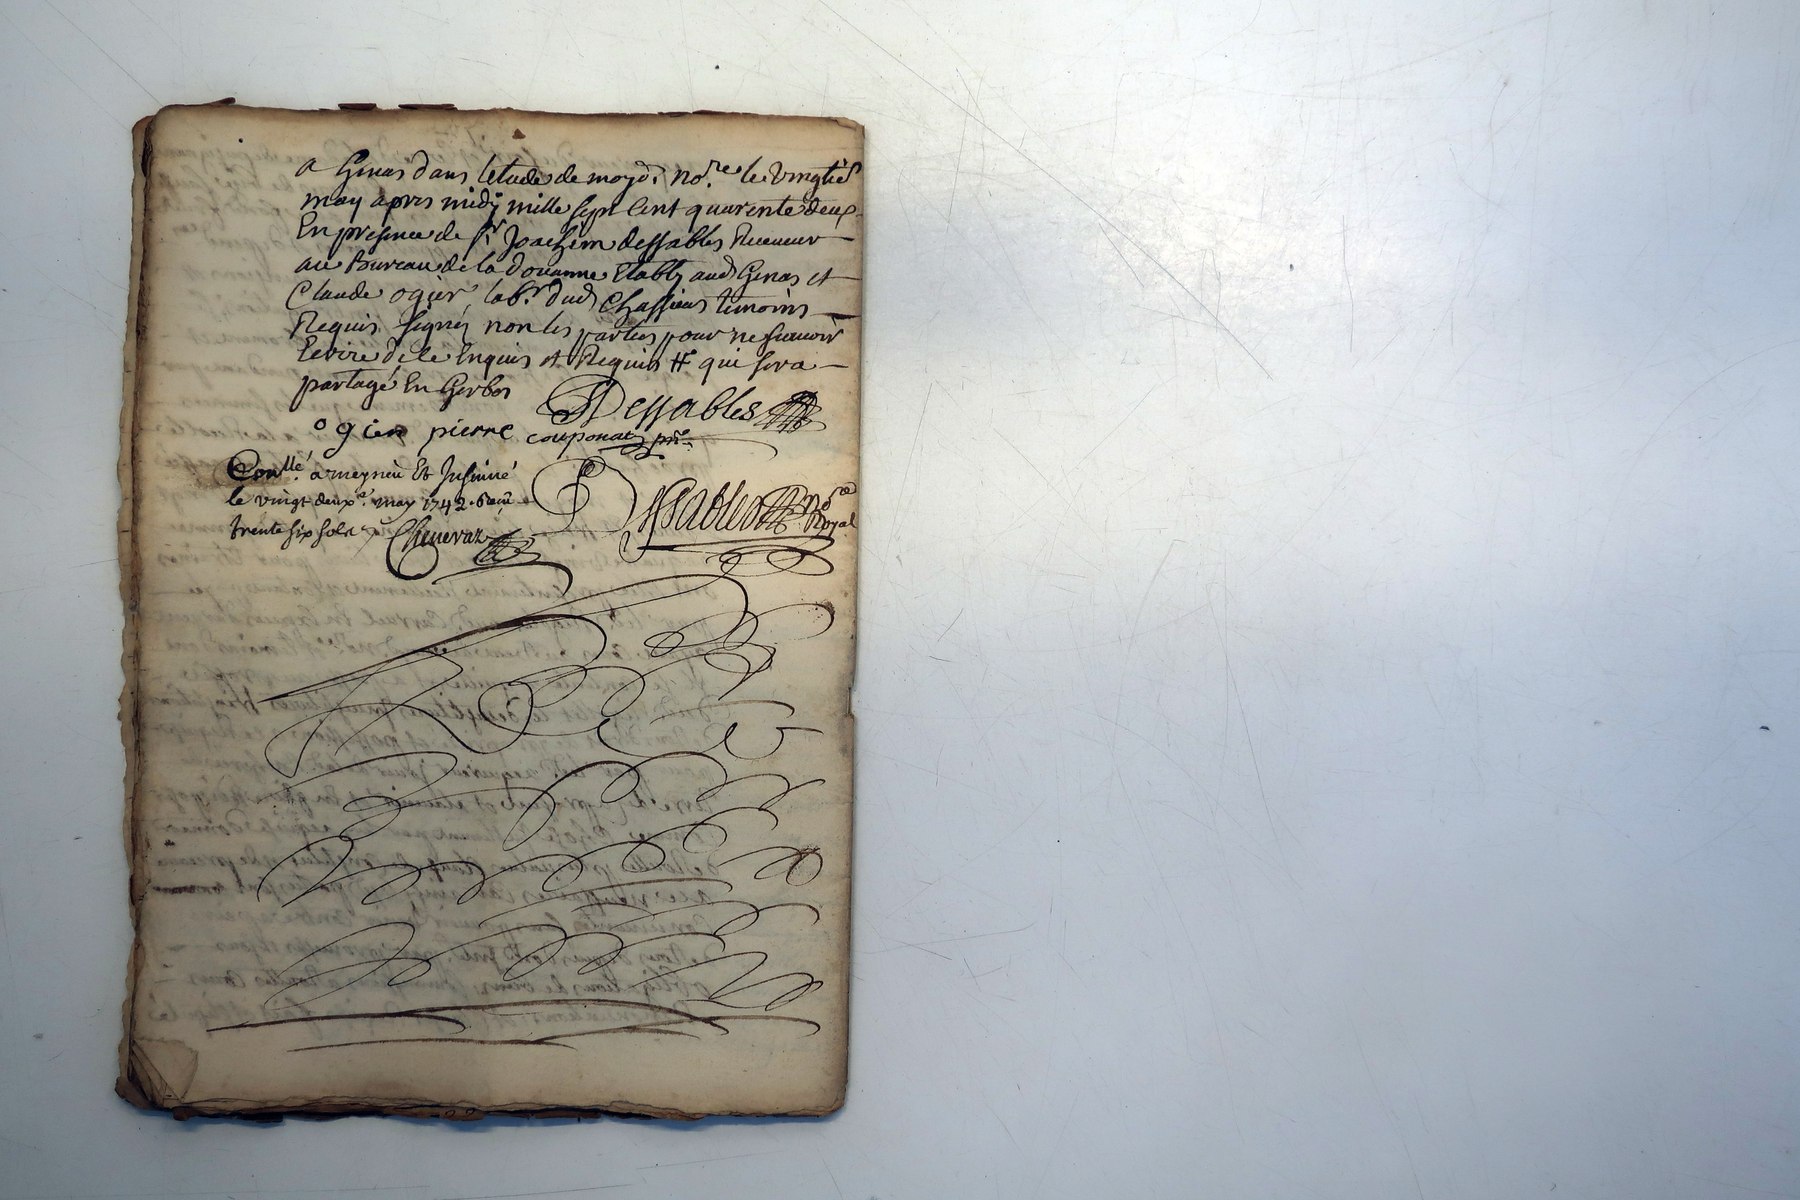 a Genas dans letude de moyd. no.re le vingtie
may apres midy mille sept cent quarente deux
En presence de sr Joachim dessables Receveur
au Bureau de la douanne Etably aud Genas et
Claude ogier lab.r dud Chassieux temoins
Requis signéz non les parties pour ne scavoir
Ecrire de ce Enquis et Requis # qui sera
partagé En Gerbes
Dessables
ogier pierre couponat pnt
Con.llé a meyzieu Et Insinué
le vingt deux.e may 1742. Receu
trente six sols Chenevaz
Dessables no.re Royal